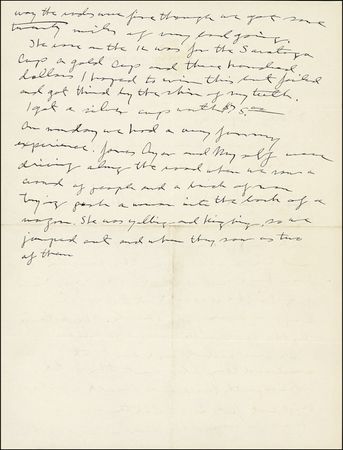 way the roads were fine though we got some
twenty miles of very bad going.
The race on the 12 was for the Saratoga
Cup a gold cup and three hundred
dollars I hoped to win this but failed
and got third by the skin of my teeth.
I got a silver cup with $75.00
On monday we had a very funny
experience. James and My self were
driving along the road when we saw a
crowd of people and a bunch of men
trying push a woman into the back of a
wagon. She was yelling and kicking, so we
jumped out and when they saw us two
of them